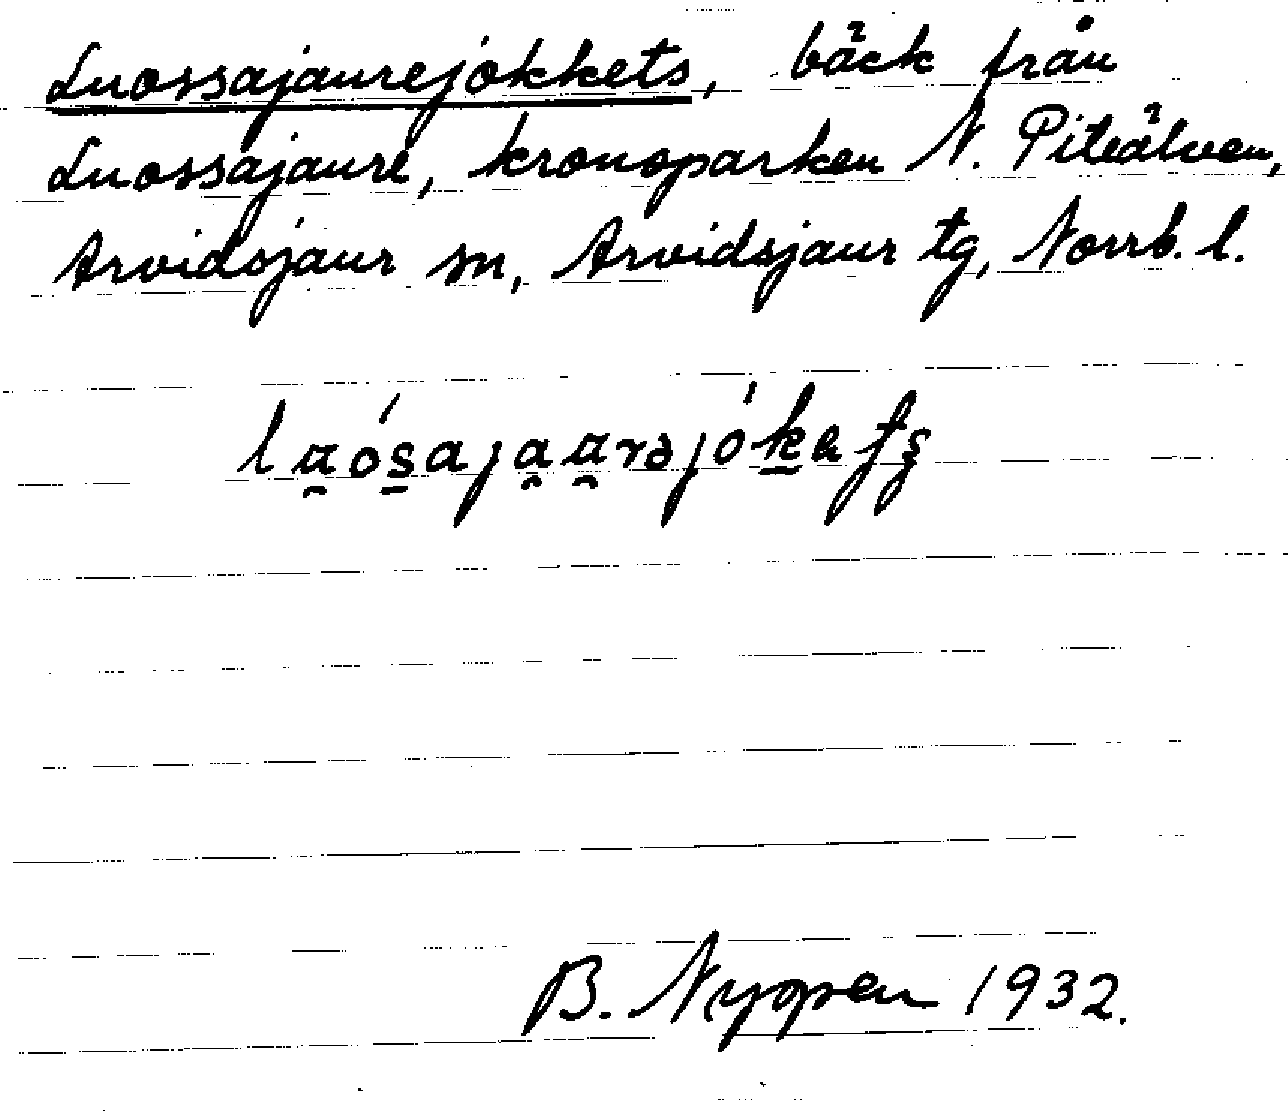 Luossajaurejokkets, bäck från
Luossajaure, kronoparken N. Piteälven,
Arvidsjaur sn, Arvidsjaur tg, Norrb. l.
B. Nyopen 1932.